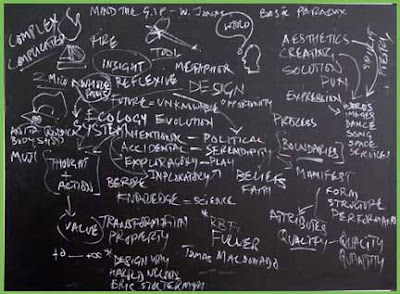 MIND THE GAP - W. JONAS
BASIC PARADOX
COMPLEX
COMPLICATED
FIRE
TOOL
WORLD
AESTHETICS
CREATING
SOLUTION
FUN
INSIGHT
METAPHOR
2 MICO WHOLE
PARTS
REFLEXIVE
DESIGN
EXPRESSION
FUTURE = UNKNOWABLE OPPORTUNITY
WORDS
IMAGES
DANCE
SONG
SPACE
SERVICES
ECOLOGY EVOLUTION
PROCESS
SYSTEM
INTENTIONAL - POLITICAL
ACCIDENTAL - SERENDIPITY
EXPLORATORY - PLAY
BODY
MUJI
[BOUNDARIES]
MANIFEST
THOUGHT
+
ACTION
BELIEFS
FAITH
KNOWLEDGE = SCIENCE
FORM
STRUCTURE
PERFORMANCE
ATTRIBUTES
VALUE
TRANSFORMATION
PROPERTY
FULLER
QUALITY - QUALITY
QUANTITY
TOMAS MALDONADO
* DESIGN WAY
HAROLD NELSON
ERIC STOLTERMAN